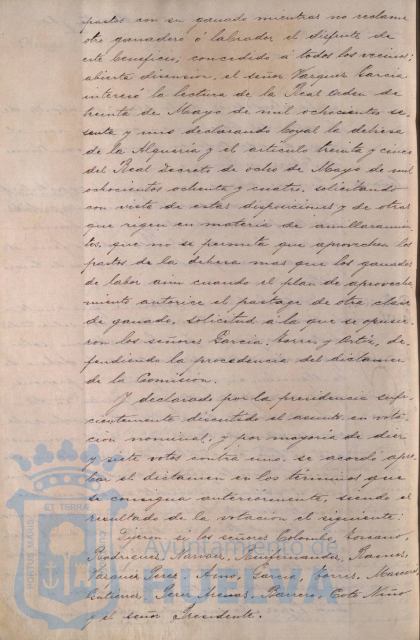 pastos con su ganado mientras no reclame
otro ganadero ó labrador el disfrute de
este beneficio, concedido á todos los vecinos;
abierta discusion, el señor Vazquez Garcia
interesó la lectura de la Real orden de
treinta de Mayo de mil ochocientos se
senta y uno declarando boyal la dehesa
de la Alqueria y el articulo treinta y cinco
del Real decreto de ocho de Mayo de mil
ochocientos ochenta y cuatro, solicitando
con vista de estas disposiciones y de otras
que rigen en materia de amillaramien
tos, que no se permita que aprovechen los
pastos de la dehesa mas que los ganados
de labor aun cuando el plan de aprovecha
miento autorice el pastage de otra clase
de ganado, solicitud á la que se opusie
ron los señores Garcia, Torres y Ortiz, de
fendiendo la procedencia del dictamen
de la Comisión.
Y declarado por la presidencia sufi
cientemente discutido el asunto, en vota
cion nominal, y por mayoria de diez
y siete votos contra uno, se acordó apro
bar el dictamen en los términos que
se consigna anteriormente, siendo el
resultado de la votacion el siguiente:
Dijeron si los señores Colombo, Soriano,
Rodriguez Hernandez, Ramos,
Vazquez Perez, Garcia, Torres,
Gutierrez, Perez Barrero, Coto Niño
y el señor Presidente.
ET TERRÆ
PORTUS MARIS
Ayuntamiento de
HUELVA